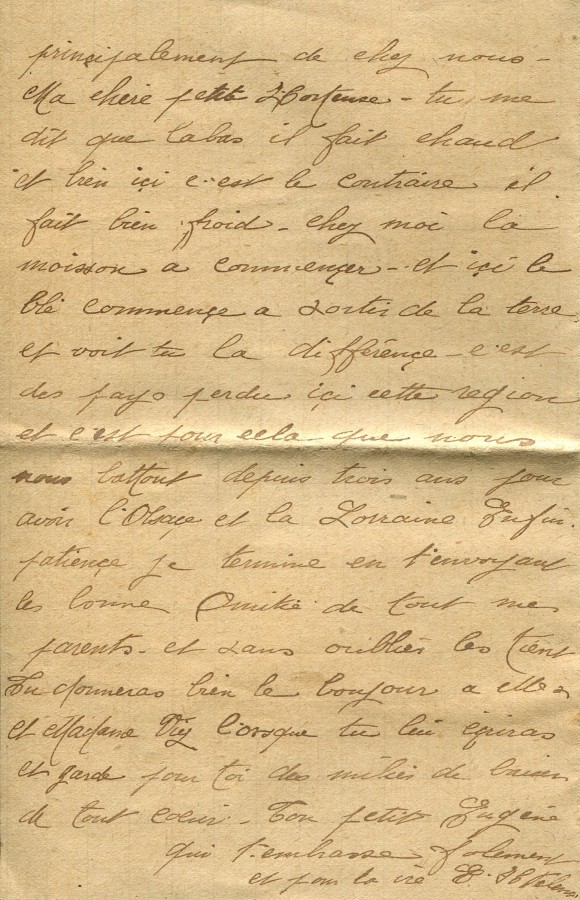 principalement de chez nous -
Ma chère petite Hortense - tu me
dit que labas il fait chaud
et bien içi c'est le contraire il
fait bien froid - chez moi la
moisson a commençer - et içi le
blé commençe a sortir de la terre
et voit tu la différençe - c'est
des pays perdu içi cette region
et c'est pour cela - que nous
nous battont depuis trois ans pour
avoir l'Alsaçe et la Lorraine Enfin.
patiençe je termine en t'envoyant
les bonne Amitié de tout mes
parents - et sans oublier les tient
Tu donneras bien le bonjour a elle
et Madame lorsque tu lui éçriras
et garde pour toi des milier de baiser
de tout coeur - Ton petit Eugène
qui t'embrasse folement
et pour la vie E.